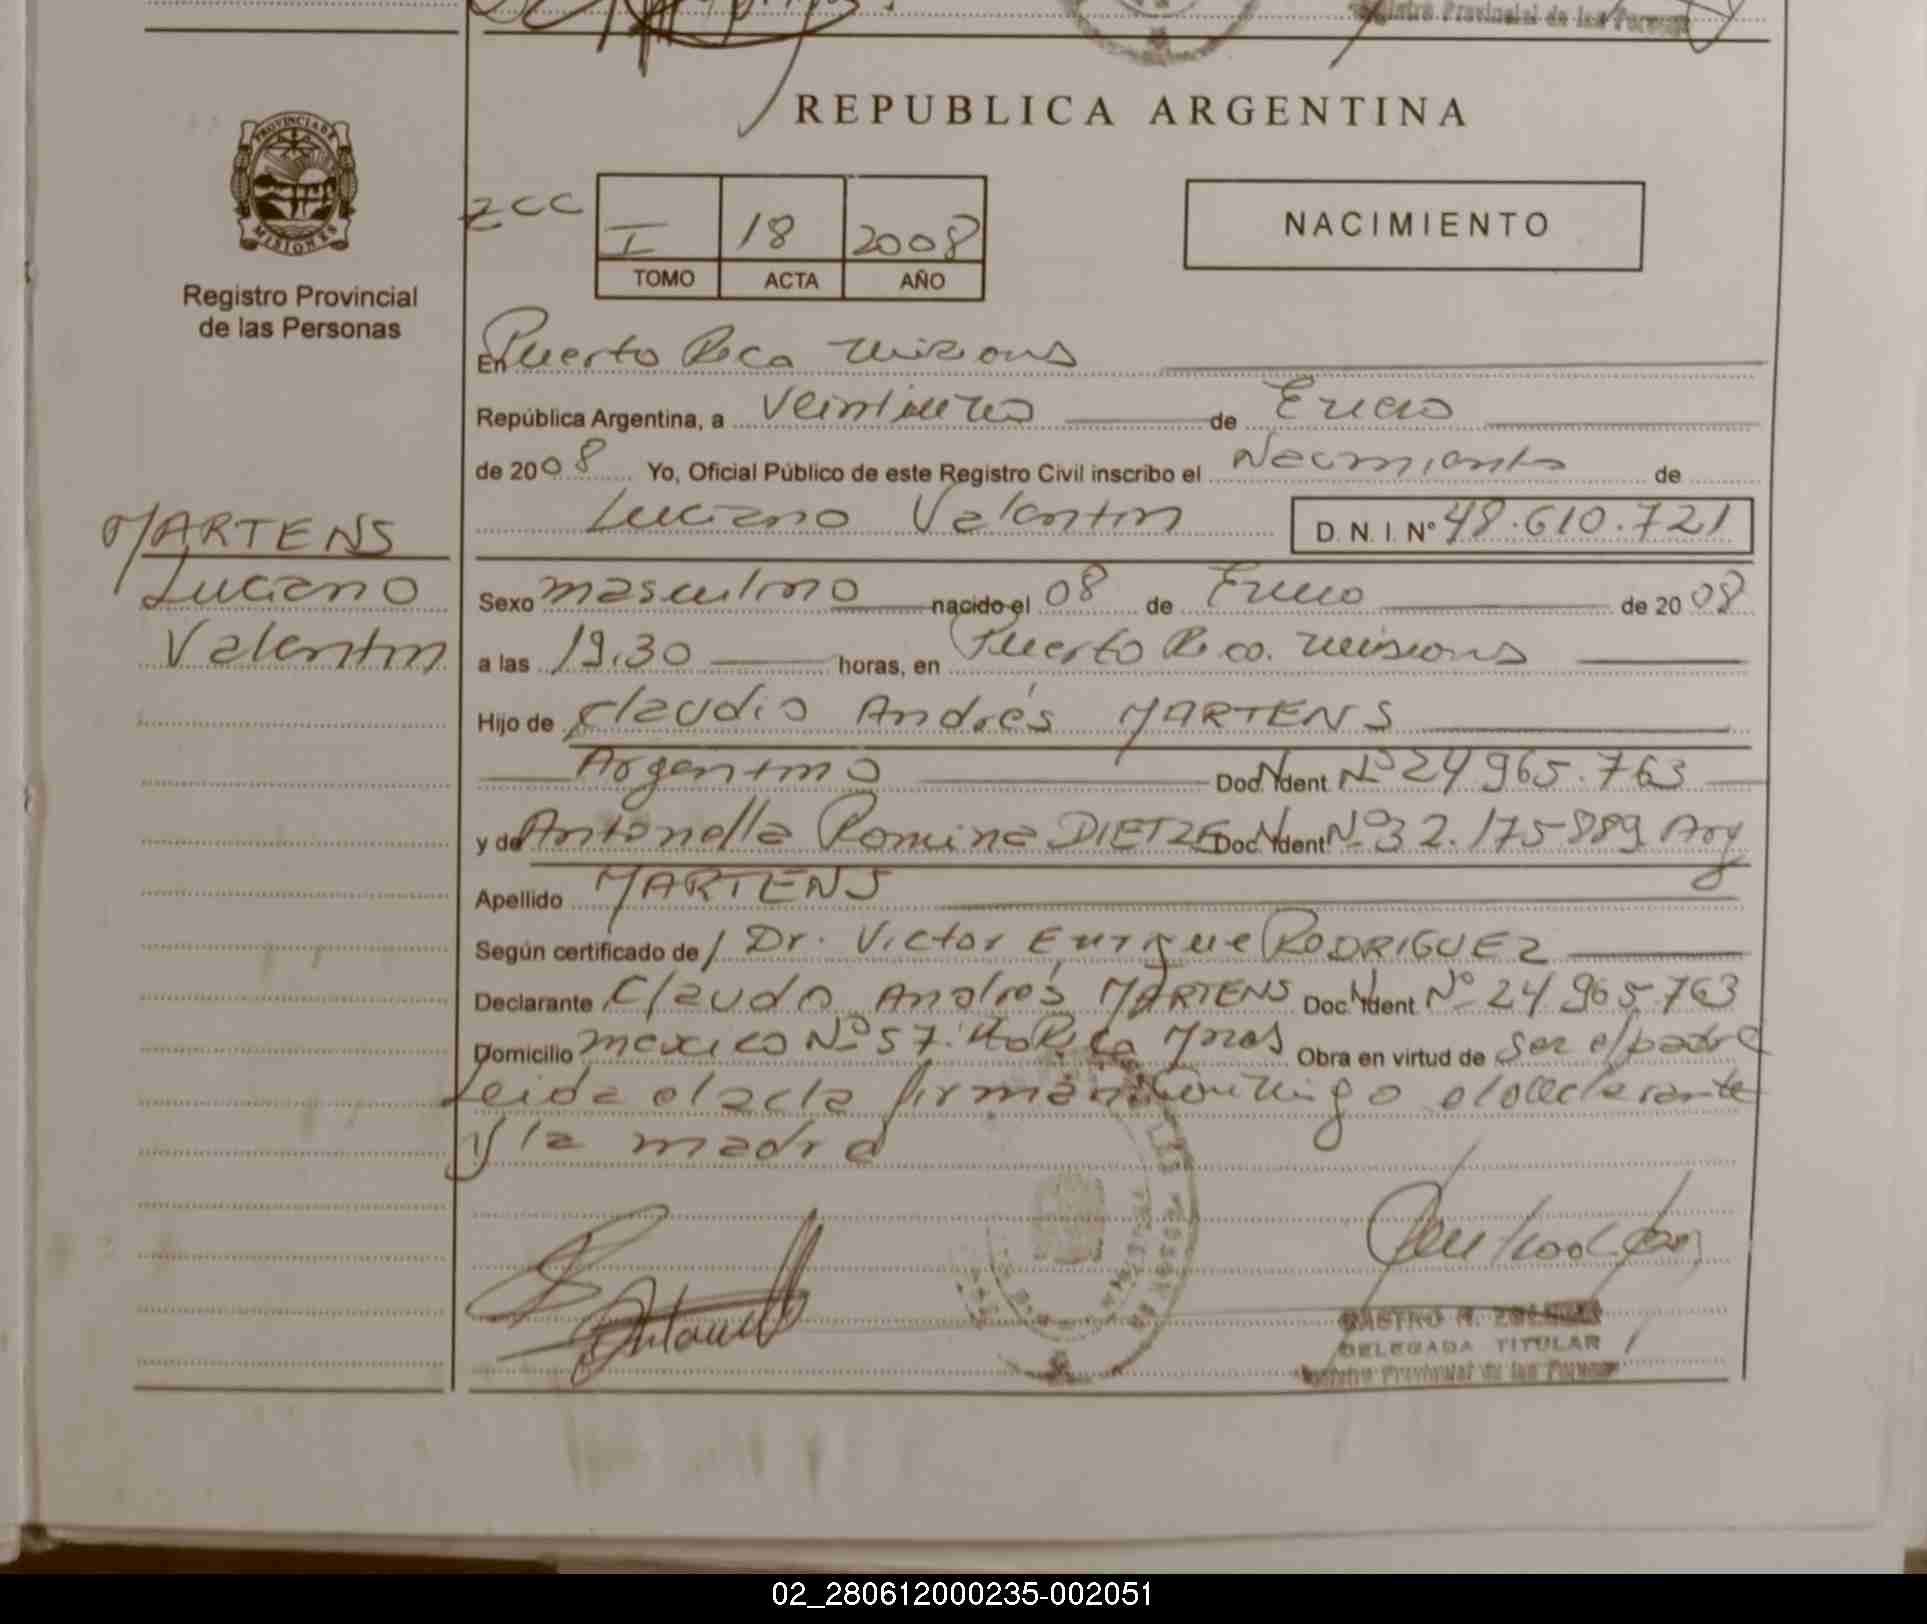 Registro Provincial de las Personas
REPUBLICA ARGENTINA
PROVINCIA DE
MISIONES
Registro Provincial
de las Personas
2CC
I 18 2008
TOMO ACTA AÑO
NACIMIENTO
En Puerto Rico Misiones
República Argentina, a Veintiuno de Enero
de 2008 Yo, Oficial Público de este Registro Civil inscribo el Nacimiento de
Luciano Valentin D. N. I. Nº 48.610.721
MARTENS
Luciano
Valentin
Sexo masculino nacido el 08 de Enero de 2008
a las 19.30 horas, en Puerto Rico. Misiones
Hijo de Claudio Andrés MARTENS
Argentino Doc. Ident Nº 24.965.763
y de Antonella Romina DIETZE Doc Ident Nº 32.175.889 Arg
Apellido MARTENS
Según certificado de Dr. Victor Enrique RODRIGUEZ
Declarante Claudio Andrés MARTENS Doc. Ident Nº 24.965.763
Domicilio Mexico Nº 57. Pto Rico Mnes Obra en virtud de ser el padre
Leida el acta firman conmigo el declarante
y la madre
Antonella
CASTRO N.
DELEGADA TITULAR
Registro Provincial de las Personas
02_280612000235-002051